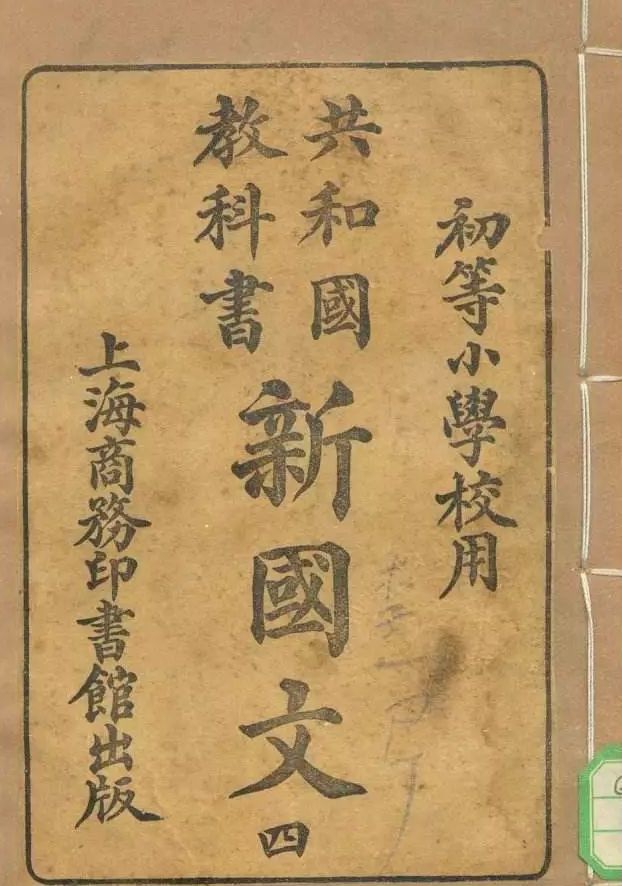 初等小學校用
共和國
教科書
新國文
四
上海商務印書館出版